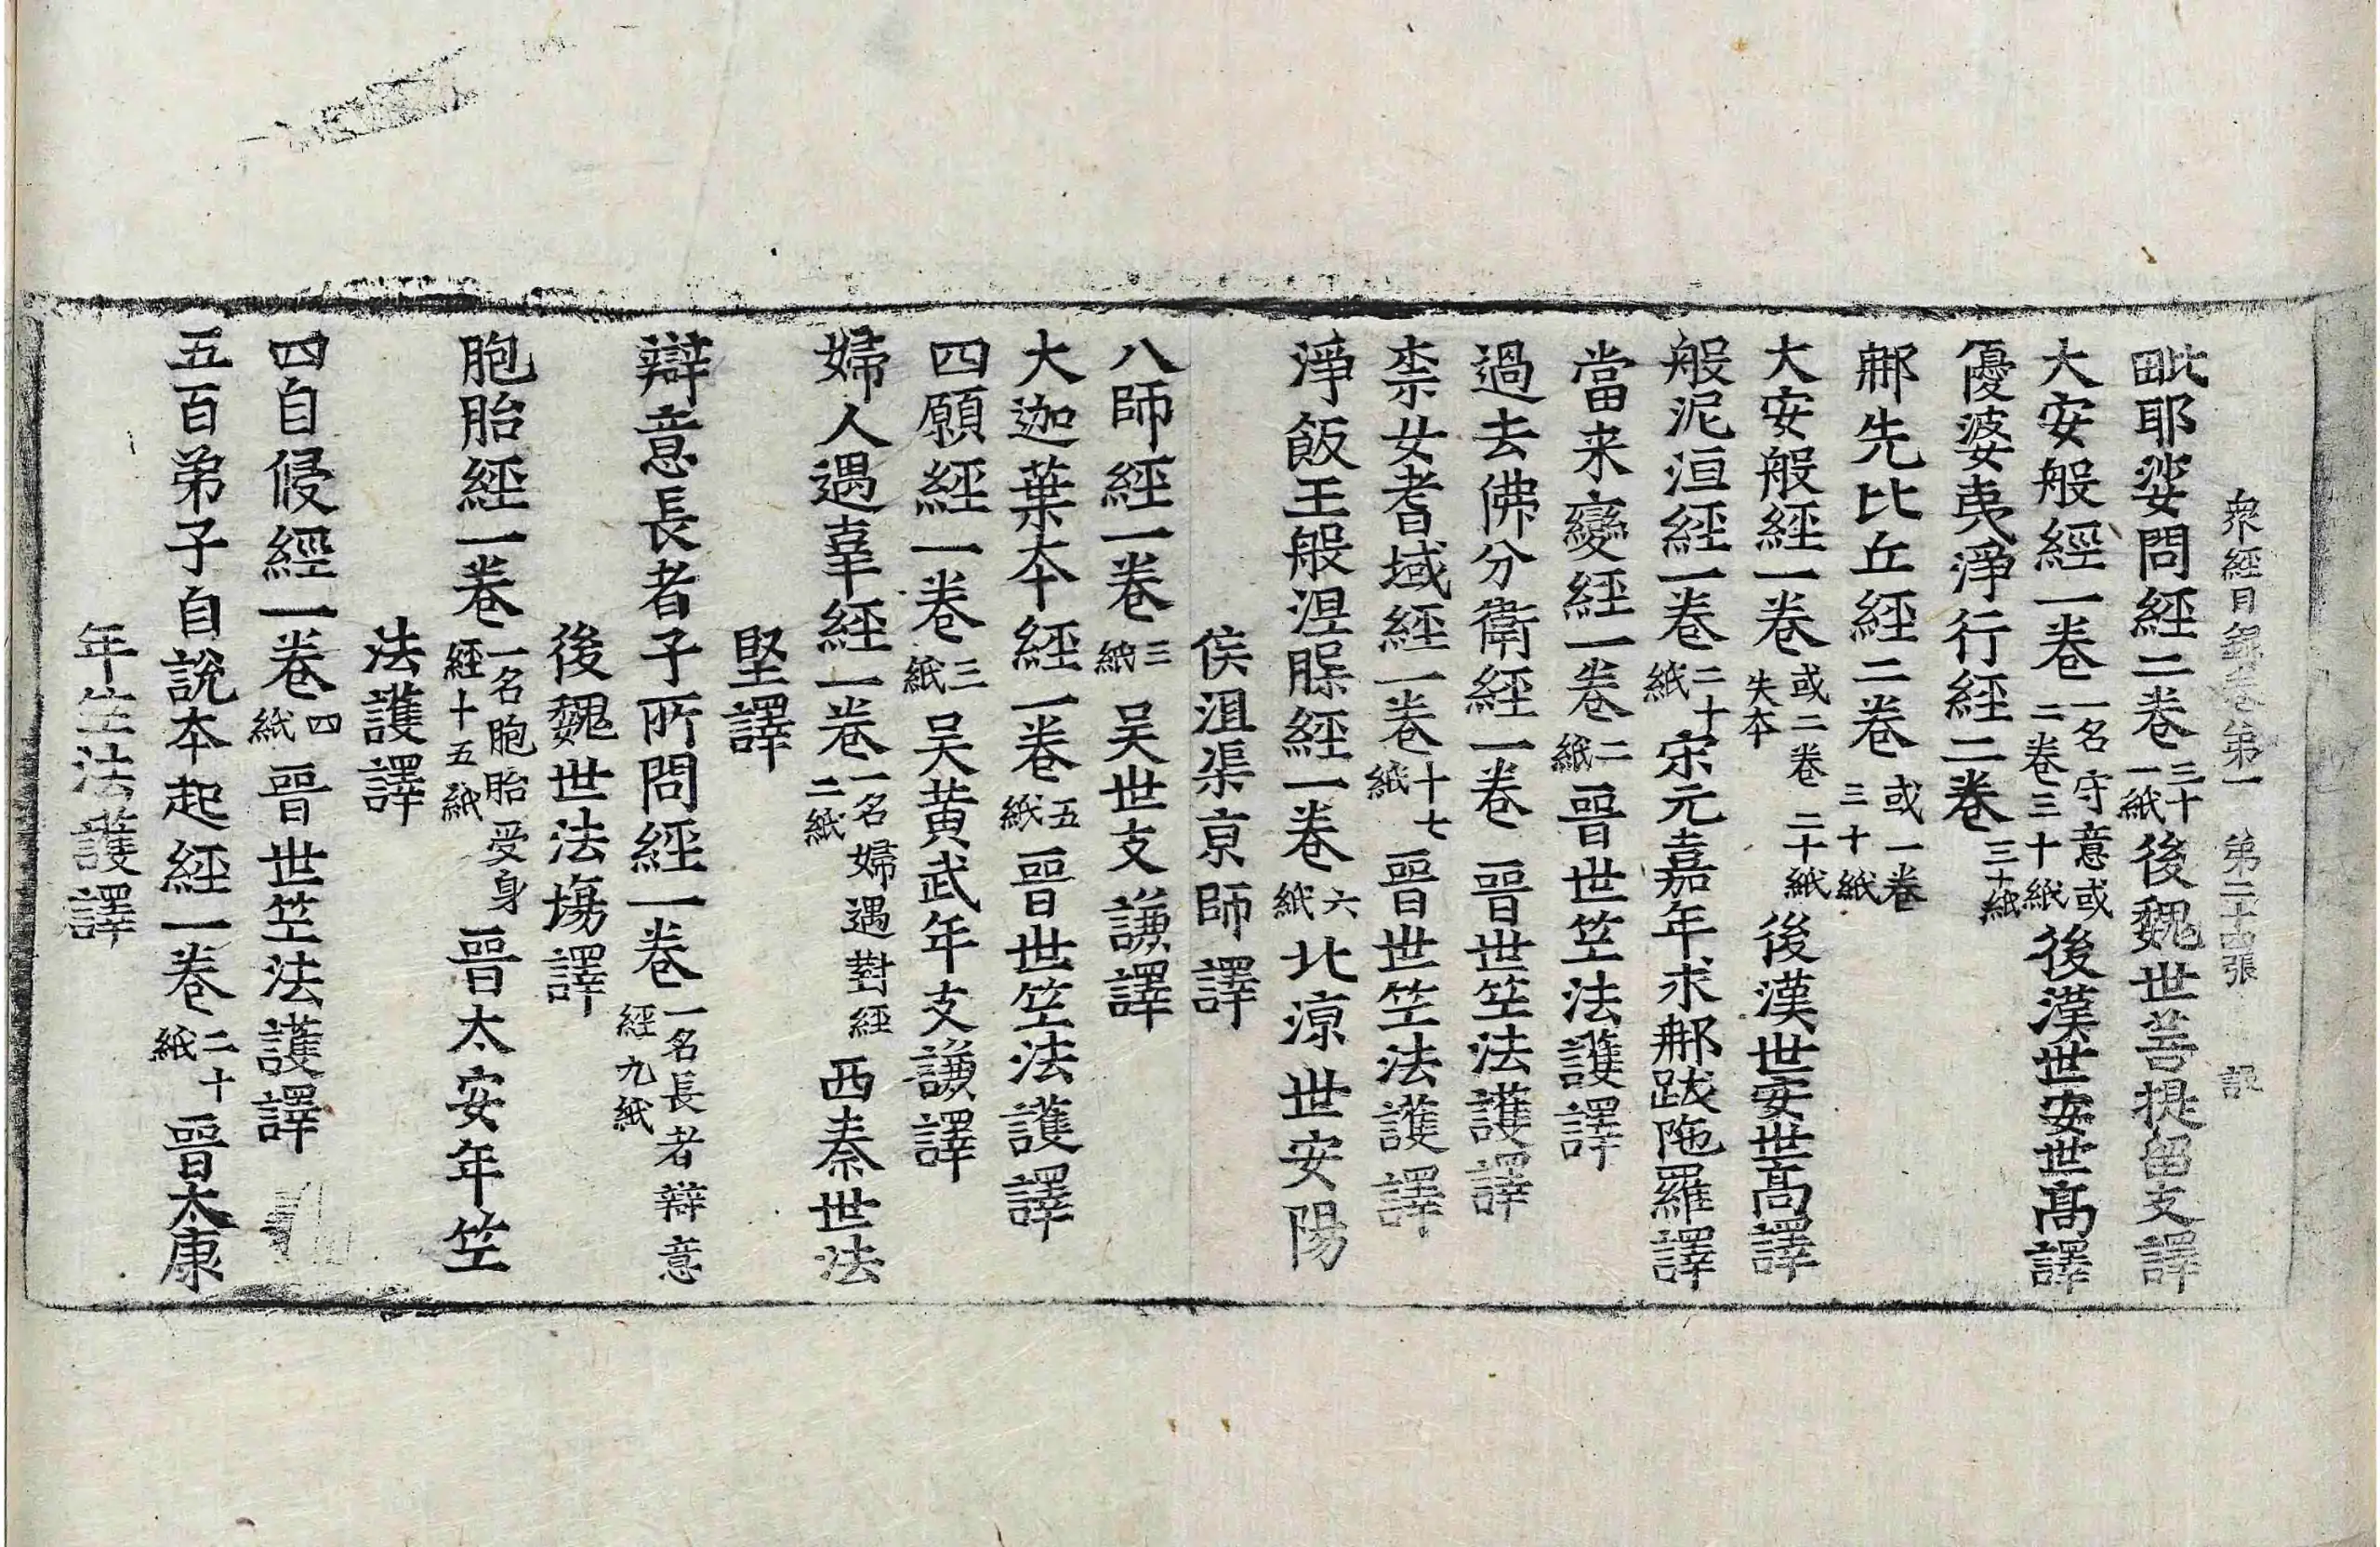 衆經目錄卷第一　第二十四張　　誐
毗耶娑問經二卷三十一紙後魏世菩提留支譯
大安般經一卷一名守意或二卷三十紙後漢世安世髙譯
優婆夷淨行經二卷三十紙
郍先比丘經二卷或一卷三十紙
大安般經一卷或二卷失本二十紙後漢世安世髙譯
般泥洹經一卷二十紙宋元嘉年求郍跋陁羅譯
當来變經一卷二紙晉世竺法護譯
過去佛分衛經一卷晉世竺法護譯
柰女耆域經一卷十七紙晉世竺法護譯
淨飯王般涅槃經一卷六紙北涼世安陽
侯沮渠京師譯
八師經一卷三紙吴世支謙譯
大迦葉本經一卷五紙晉世竺法護譯
四願經一卷三紙吴黄武年支謙譯
婦人遇辜經一卷一名婦遇對經二紙西秦世法
堅譯
辯意長者子所問經一卷一名長者辯意經九紙
後魏世法場譯
胞胎經一卷一名胞胎受身經十五紙晉太安年竺
法護譯
四自侵經一卷四紙晉世竺法護譯
五百弟子自說本起經一卷二十紙晉太康
年竺法護譯